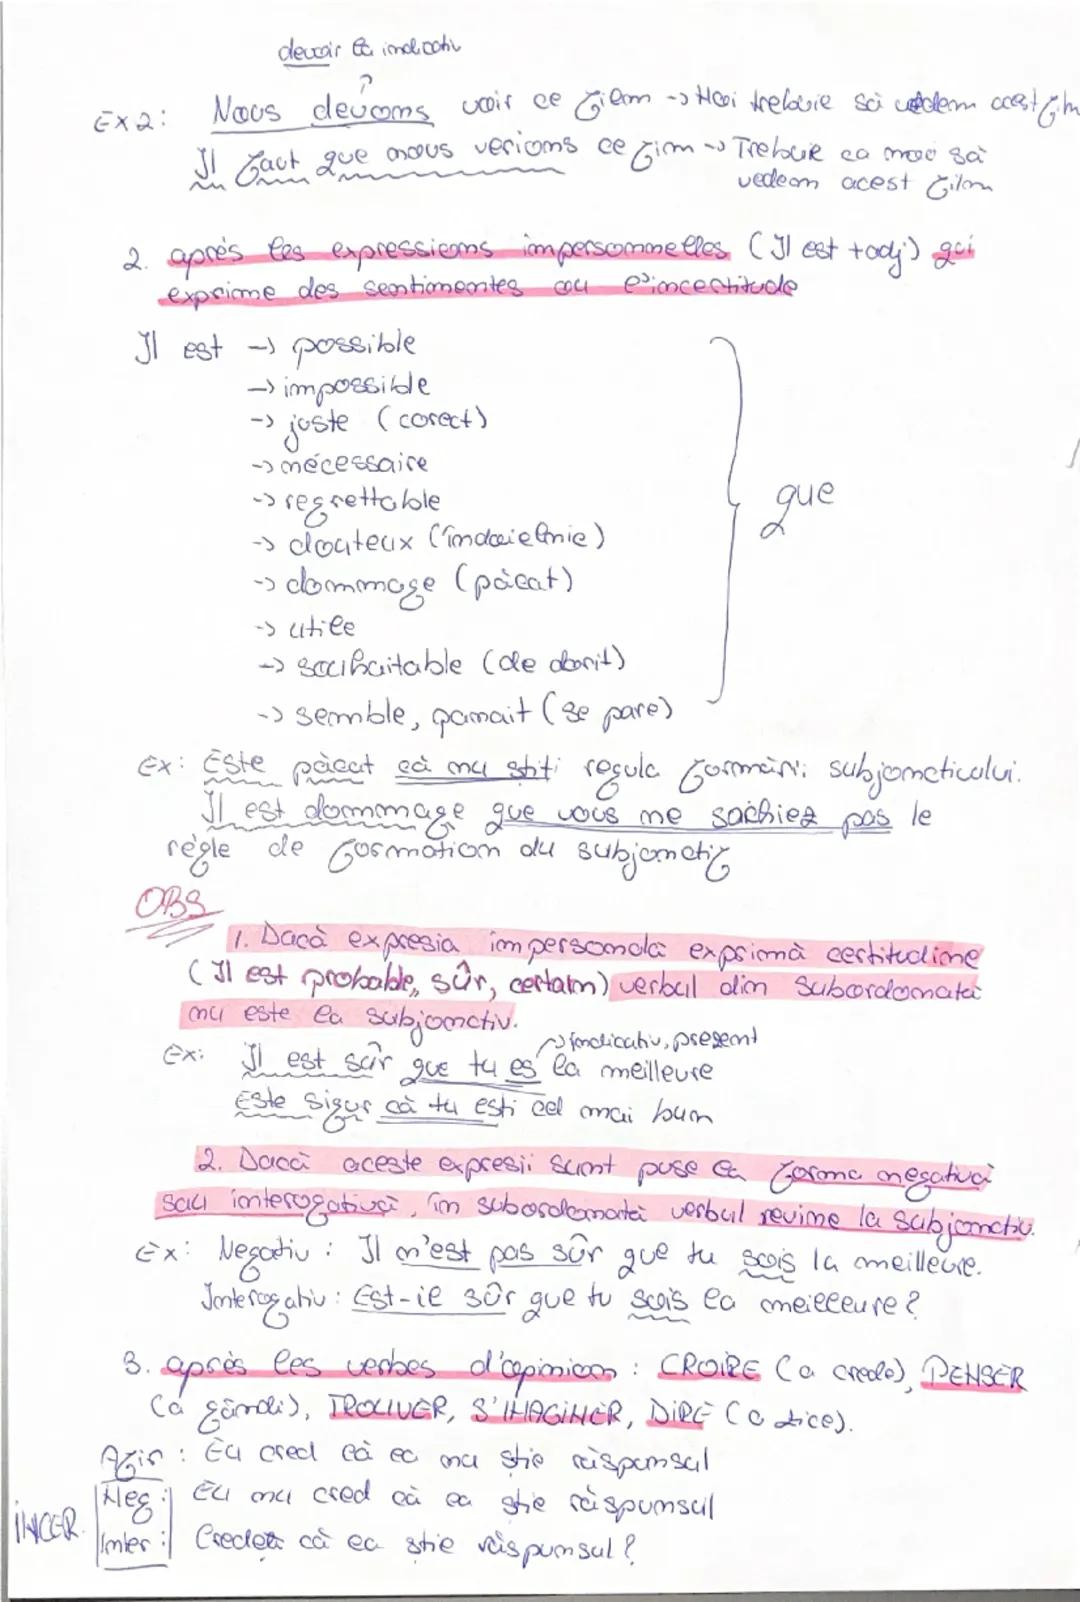 devoir la indicativ
Ex 2: Nous devons voir ce film -> Noi trebuie să vedem acest film
Il faut que nous verions ce film -> Trebuie ca noi să
vedem acest film
2. après les expressions impersonnelles (Il est + adj) qui
exprime des sentimentes ou l'incertitude
Il est -> possible
-> impossible
-> juste (corect)
-> nécessaire
-> regrettable
-> douteux (îndoielnic)
-> dommage (păcat)
-> utile
-> souhaitable (de dorit)
-> semble, parait (se pare)
que
Ex: Este păcat că nu știți regula formării subjonctivului.
Il est dommage que vous ne sachiez pas le
règle de formation du subjonctif
OBS
1. Dacă expresia impersonală exprimă certitudine
(Il est probable, sûr, certain) verbul din subordonată
nu este la subjonctiv.
indicativ, prezent
Ex: Il est sûr que tu es la meilleure
Este sigur că tu ești cel mai bun
2. Dacă aceste expresii sunt puse la forma negativă
sau interogativă, în subordonată verbul revine la subjonctiv.
Ex: Negativ: Il n'est pas sûr que tu sois la meilleure.
Interogativ: Est-il sûr que tu sois la meilleure?
3. après les verbes d'opinion: CROIRE (a crede), PENSER
(a gândi), TROUVER, S'IMAGINER, DIRE (a zice).
Afir: Eu cred că ea nu știe răspunsul
INCER.
Neg: Eu nu cred că ea știe răspunsul
Inter: Credeți că ea știe răspunsul?